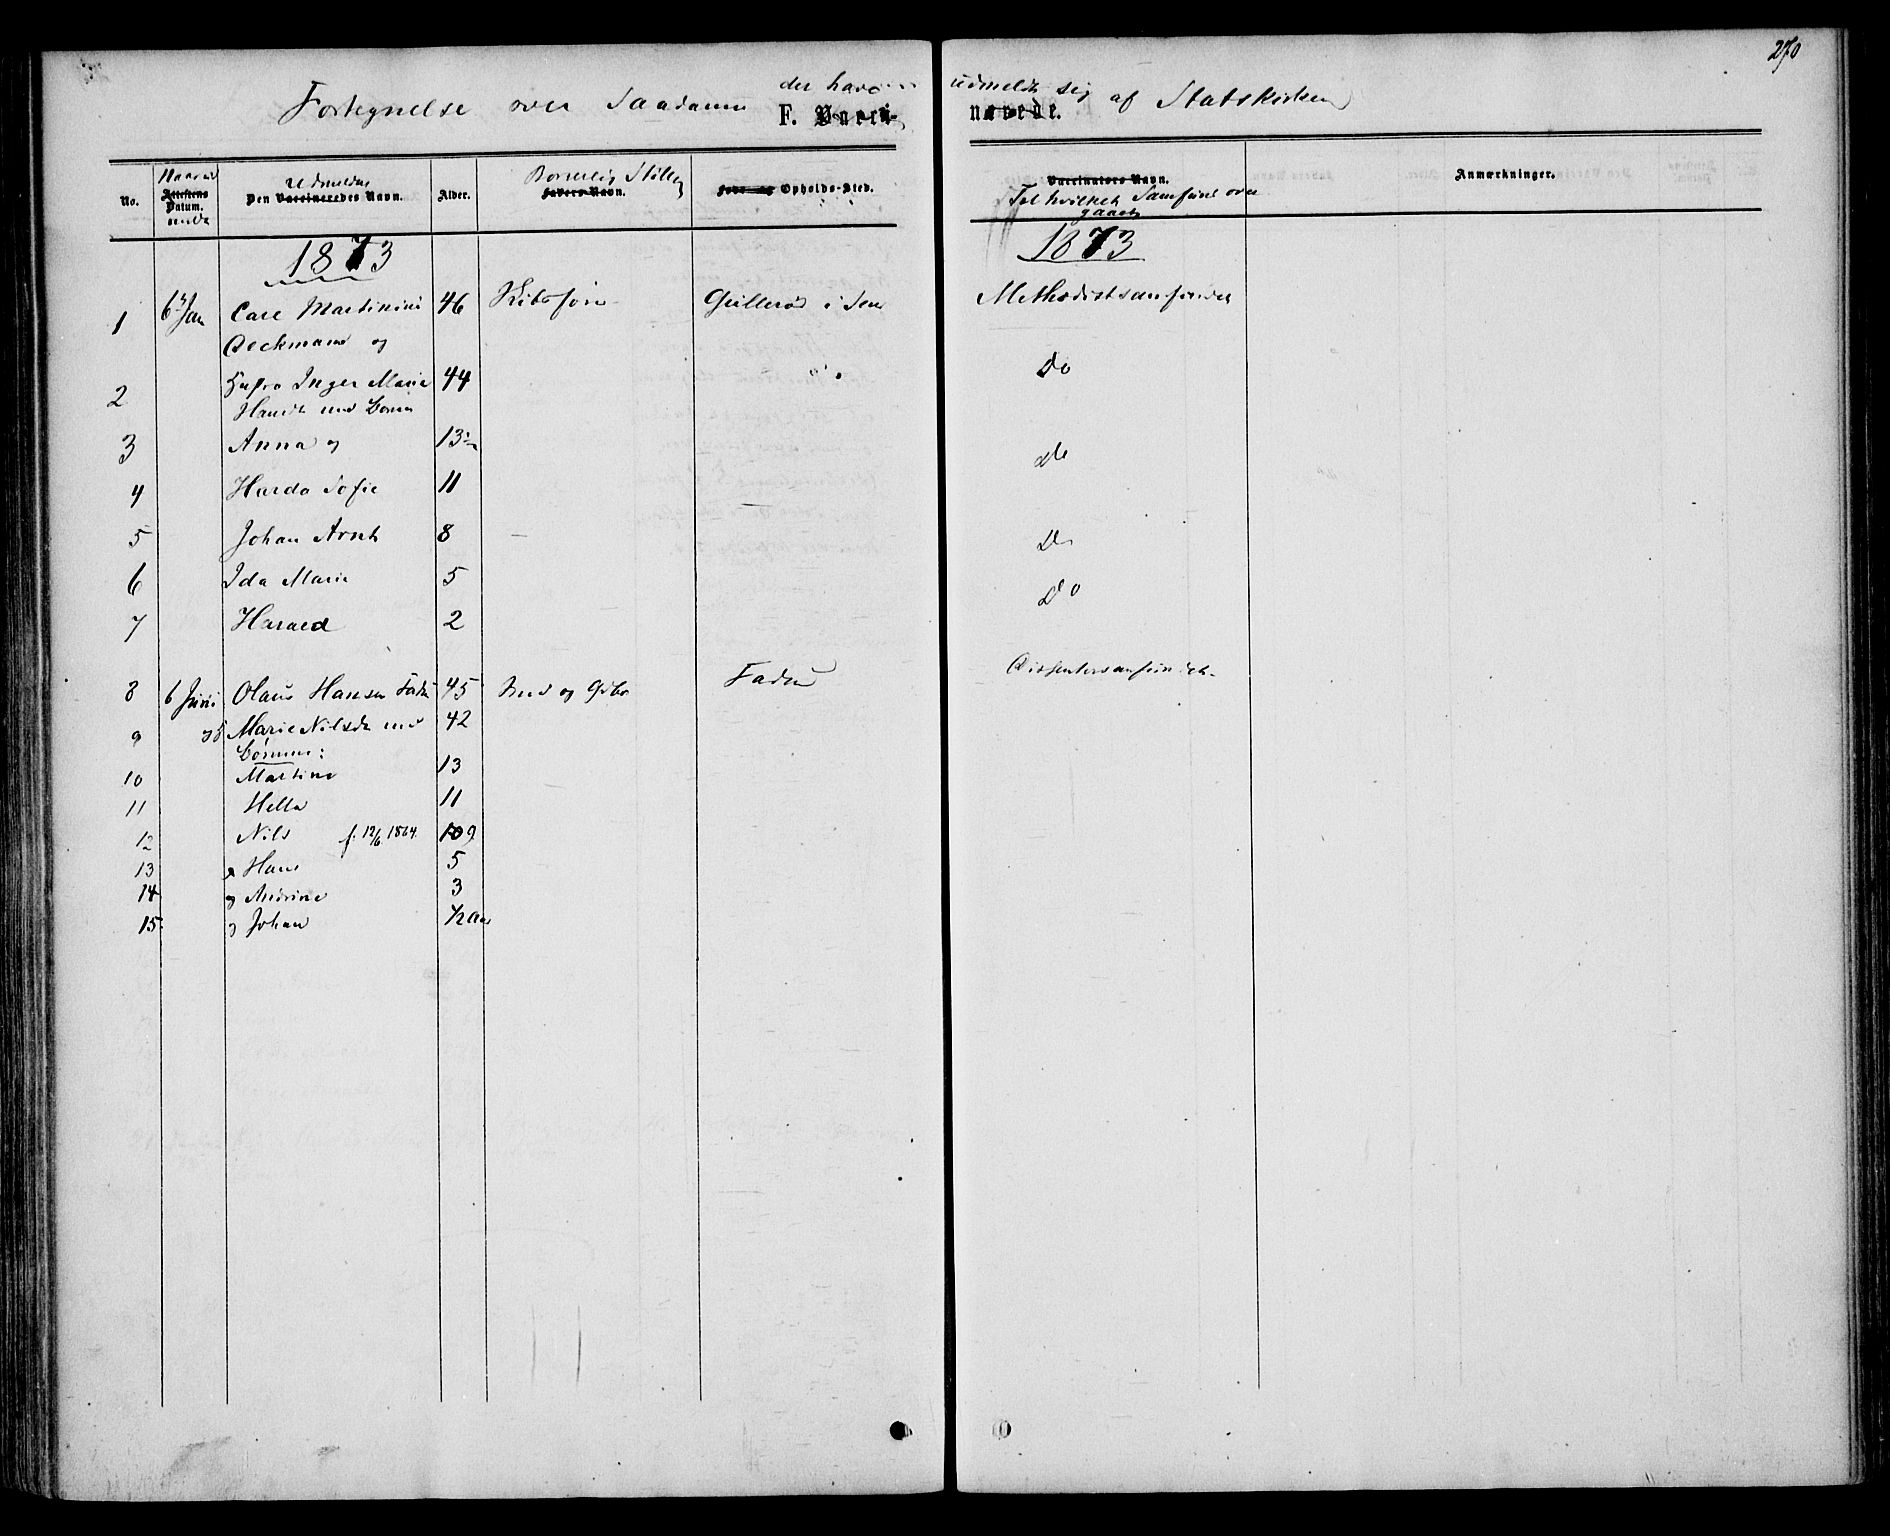 270
Fortegnelse over Saadanne der have udmeldt sig af Statskirken
F. Vacci- nerede.
No. Naar Attestens Datum. Udmeldtes Den Vaccineredes Navn. Alder. Borgerlig Stilling Faders Navn. Føde- og Opholds-Sted. Vaccinators Navn. Til hvilket Samfund over Anmærkninger.
gaaet
1873 1873
1 6 Jan Carl Martinius 46 Gullerød i Sem Methodistsamfundet
Beckmann og
2 Hustru Inger Marie 44 " Do
3 Anna og 13 Do
4 Harda Sofie 11
5 Johan Arnt 8 Do
6 Ida Marie 5 Do
7 Harald 2
8 6 Juni Olaus Hansen 45 Fadum Dissentersamfundet
9 og Marie Nilsdt med 42
Børnene:
10 Martine 13
11 Hella 11
12 Nils f. 12/6 1864. 10 9
13 Hans 5
14 og Andrine 3
15 og Johan 1/2 Aar